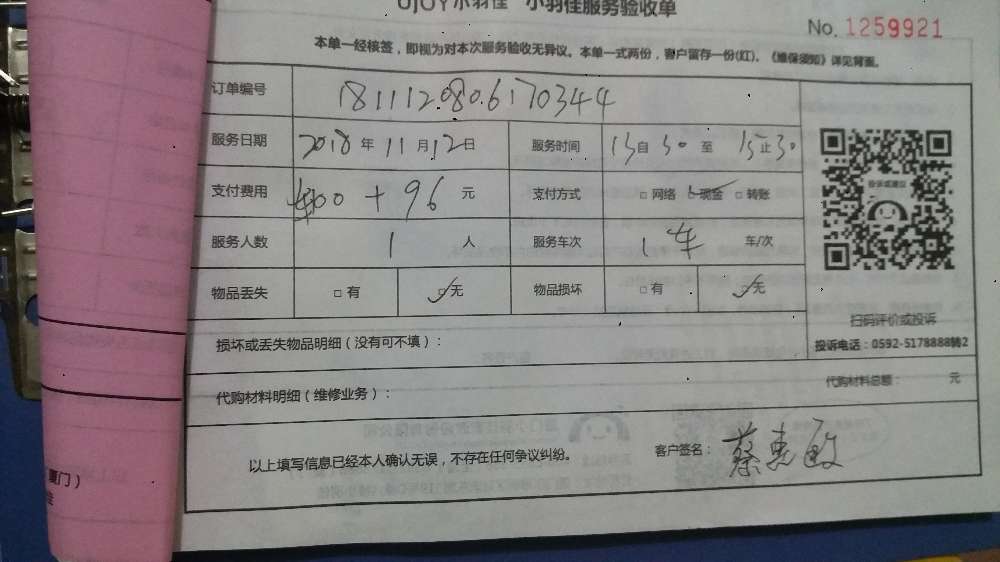 小羽佳服务验收单
No. 1259921
本单一经核签，即视为对本次服务验收无异议。本单一式两份，客户留存一份(红)。《维保须知》详见背面。
订单编号 1811120806170344
服务日期 2018年11月12日 服务时间 13自30至15止30
支付费用 400+96 元 支付方式 □网络 □现金 □转账
服务人数 1 人 服务车次 1车 车/次
物品丢失 □有 □无 物品损坏 □有 □无
投诉或建议
扫码评价或投诉
投诉电话：0592-5178888转2
损坏或丢失物品明细（没有可不填）：
代购材料明细（维修业务）： 代购材料总额： 元
以上填写信息已经本人确认无误，不存在任何争议纠纷。 客户签名：蔡惠敏
厦门）